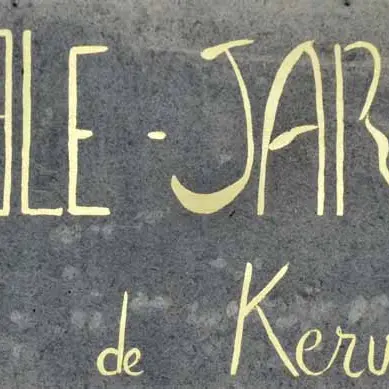 LE - JAR
de Kerv